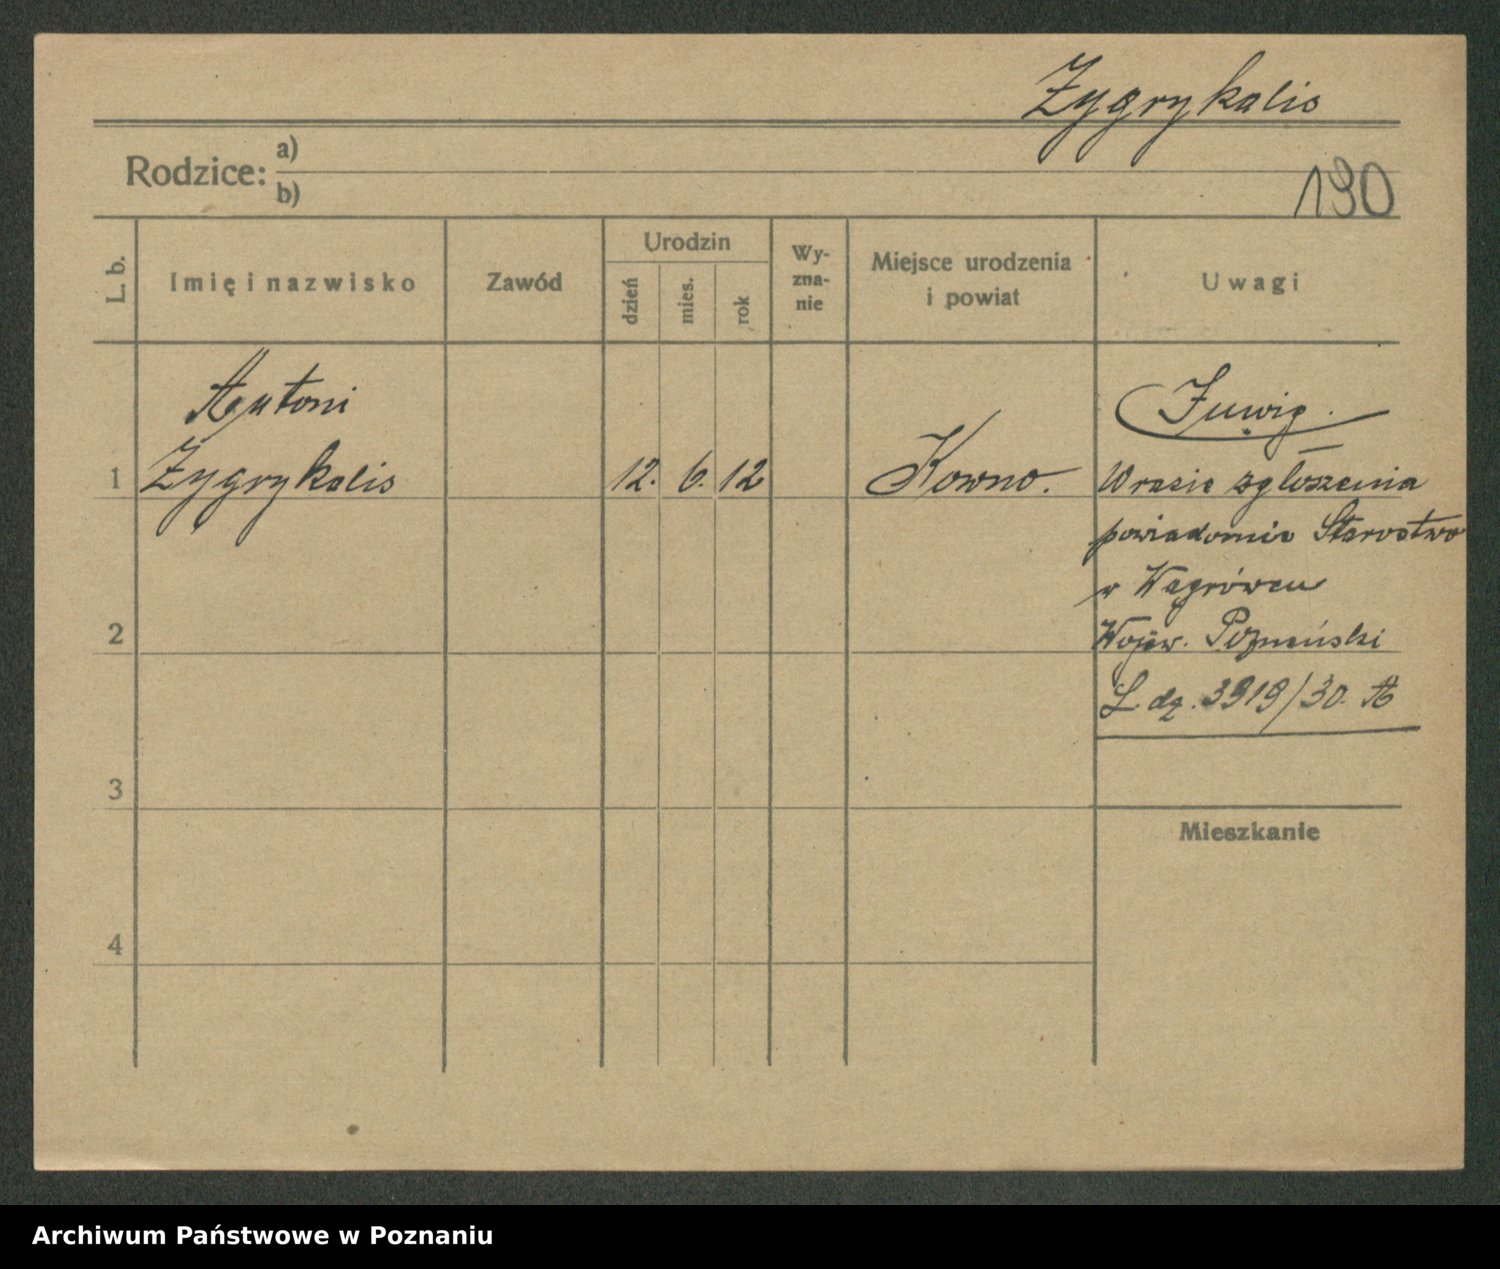 Zygrykalis
Rodzice: a)
b)
190
L. b.
Imię i nazwisko
Zawód
Urodzin
dzień
mies.
rok
Wy-
zna-
nie
Miejsce urodzenia
i powiat
Uwagi
Antoni
1 Zygrykalis 12. 6. 12 Kowno.
Inwig.
W razie zgłoszenia
powiadomić Starostwo
w Wągrówcu
2
Wojew. Poznański
L. dz. 3919/30. A
3
Mieszkanie
4
Archiwum Państwowe w Poznaniu